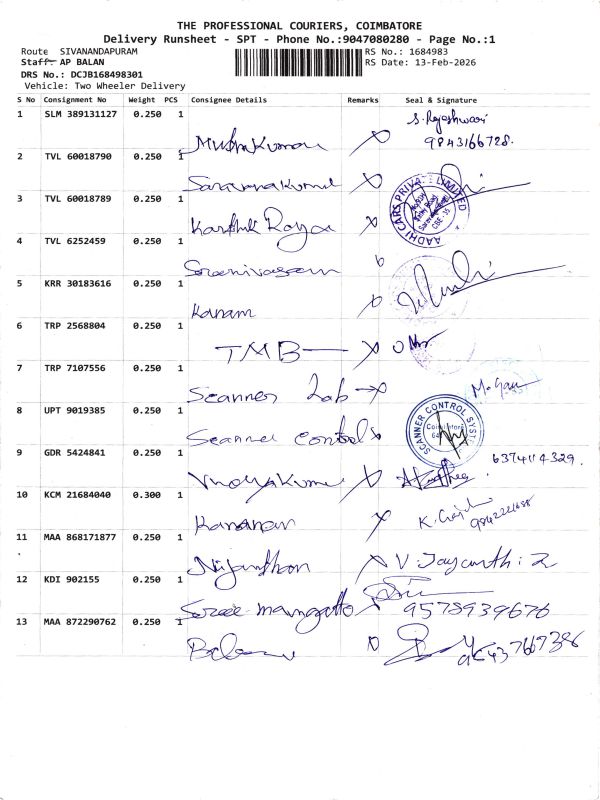 THE PROFESSIONAL COURIERS, COIMBATORE
Delivery Runsheet - SPT - Phone No.:9047080280 - Page No.:1
Route SIVANANDAPURAM RS No.: 1684983
Staff: AP BALAN RS Date: 13-Feb-2026
DRS No.: DCJB168498301
Vehicle: Two Wheeler Delivery
S No Consignment No Weight PCS Consignee Details Remarks Seal & Signature
1 SLM 389131127 0.250 1 S. Rajeshwari
9843166728.
2 TVL 60018790 0.250 1
Saravanakumar
AADHI CARS PRIVATE LIMITED
3 TVL 60018789 0.250 1
Karthik Raja
4 TVL 6252459 0.250 1
Sreenivasan
5 KRR 30183616 0.250 1
Kanam
6 TRP 2568804 0.250 1
TMB
7 TRP 7107556 0.250 1
Scanner Lab
8 UPT 9019385 0.250 1
Scanner Control
SCANNER CONTROL
9 GDR 5424841 0.250 1 6374114329.
10 KCM 21684040 0.300 1
Kannan
11 MAA 868171877 0.250 1
Nijanthan V. Jayanthi
12 KDI 902155 0.250 1
Sree 9578939676
13 MAA 872290762 0.250 1